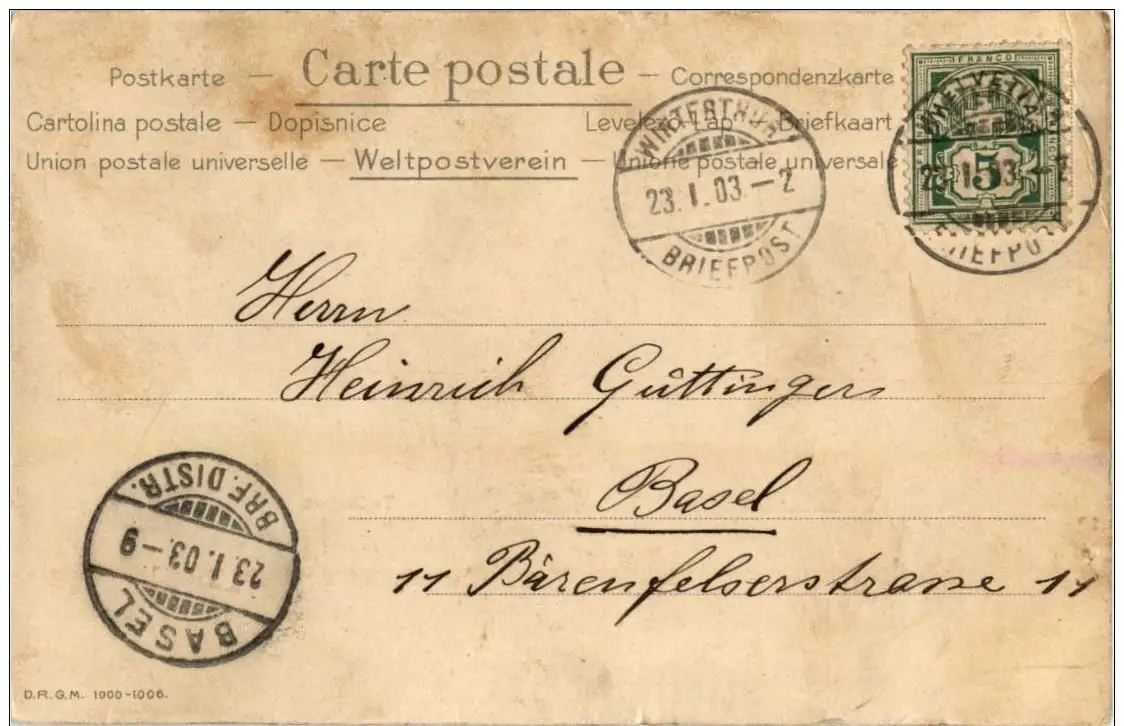 Postkarte — Carte postale — Correspondenzkarte
Cartolina postale — Dopisnice Levelező-Lap — Briefkaart
Union postale universelle — Weltpostverein — Unione postale universale
FRANCO
HELVETIA
5
WINTERTHUR
23.I.03–2
BRIEFPOST
BRIEFPOST
Herrn
Heinrich Güttinger
Basel
11 Bärenfelserstrasse 11
BRF. DISTR.
23.I.03.–9
BASEL
D.R.G.M. 1900-1006.